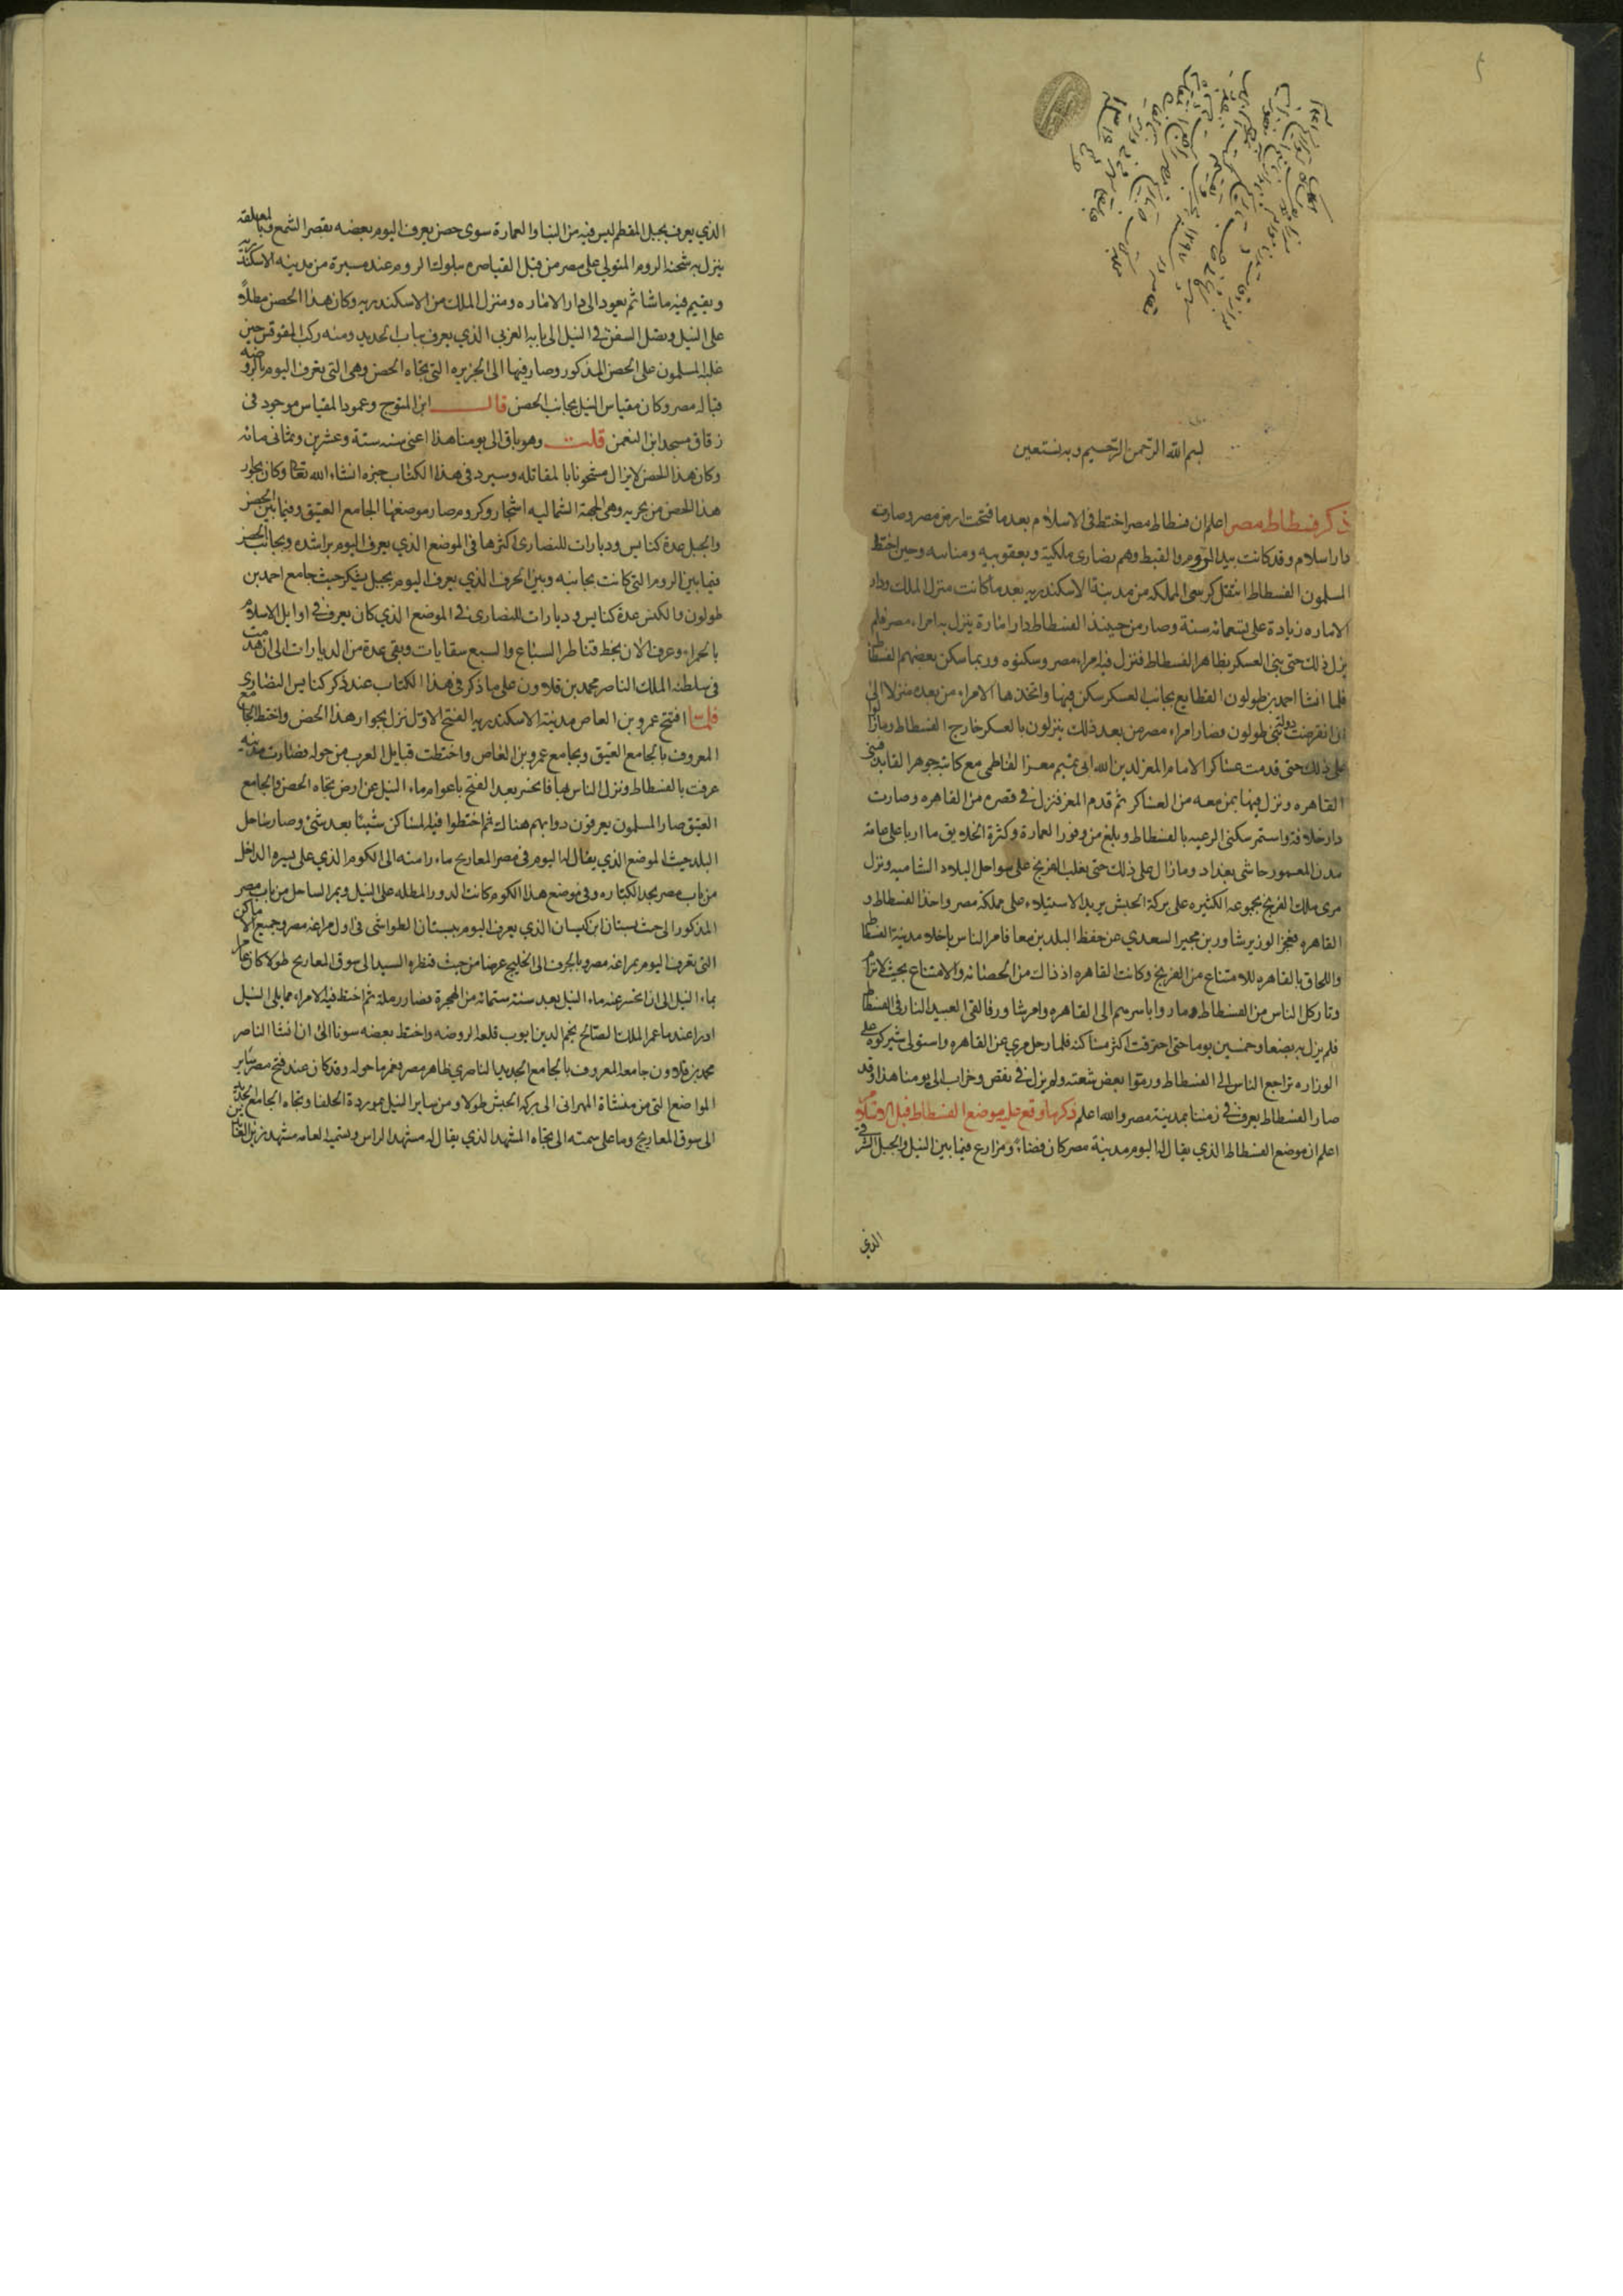 بسم الله الرحمن الرحيم وبه نستعين
ذكر فسطاط مصر اعلم ان فسطاط مصر اختط فى الاسلام بعدما فتحت ارض مصر وصارت
دار اسلام وقد كانت بيد الروم والقبط وهم نصارى ملكية ويعقوبيه ومناسه وحين اختط
المسلمون الفسطاط انتقل كرسى المملكه من مدينة الاسكندريه بعد ما كانت منزل الملك ودار
الاماره زيادة على تسعمائه سنة وصار من حينئذ الفسطاط دار امارة ينزل به امراء مصر فلم
يزل ذلك حتى بنى العسكر بظاهر الفسطاط فنزل فيه امراء مصر وسكنوه وربما سكن بعضهم الفسطاط
فلما انشا احمد بن طولون القطايع بجانب العسكر سكن فيها واتخذها الامراء من بعده منزلا الى
ان انقرضت دولة بنى طولون فصار امراء مصر من بعد ذلك ينزلون بالعسكر خارج الفسطاط ومازالوا
على ذلك حتى قدمت عساكر الامام المعز لدين الله ابى تميم معد الفاطمى مع كاتبه جوهر القايد فبنى
القاهره ونزل فيها بمن معه من العساكر ثم قدم المعز فنزل فى قصره من القاهره وصارت
دار خلافه واستمر سكنى الرعيه بالفسطاط وبلغ من وفور العمارة وكثرة الخلايق ما اربا على عامة
مدن المعمور حاشى بغداد ومازال على ذلك حتى تغلب الفرنج على سواحل البلاد الشاميه ونزل
مرى ملك الفرنج بجموعه الكثيره على بركة الحبش يريد الاستيلاء على مملكة مصر واخذ الفسطاط و
القاهره فعجز الوزير شاور بن مجير السعدي عن حفظ البلدين معا فامر الناس باخلاء مدينة الفسطاط
واللحاق بالقاهره للامتناع من الفرنج وكانت القاهره اذ ذاك من الحصانه والامتناع بحيث لا ترام
فلم يزل به بضعا وخمسين يوما حتى احترقت اكثر مساكنه فلما رحل مري عن القاهره واستولى شيركوه على
الوزاره تراجع الناس الى الفسطاط ورموا بعض شعثه ولم يزل فى نقص وخراب الى يومنا هذا وقد
صار الفسطاط يعرف فى زمننا بمدينة مصر والله اعلم ذكر ما وقع عليه موضع الفسطاط قبل الاسلام
اعلم ان موضع الفسطاط الذي يقال له اليوم مدينة مصر كان فضاء ومزارع فيما بين النيل والجبل الشرقى
الذي
الذي يعرف بجبل المقطم ليس فيه من البنا والعمارة سوى حصن يعرف اليوم بعضه بقصر الشمع وبالمعلقه
ينزل به شحنة الروم المتولي على مصر من قبل القياصره ملوك الروم عند مسيره من مدينه الاسكندريه
ويقيم فيه ما شا ثم يعود الى دار الاماره ومنزل الملك من الاسكندريه وكان هذا الحصن مطلا
على النيل وتصل السفن فى النيل الى بابه الغربى الذي يعرف بباب الحديد ومنه ركب المقوقس حين
غلبه المسلمون على الحصن المذكور وصار فيها الى الجزيره التى تجاه الحصن وهى التى تعرف اليوم بالروضه
قبالة مصر وكان مقياس النيل بجانب الحصن قال ابن المتوج وعمود المقياس موجود فى
زقاق مسجد ابن النعمن قلت وهو باق الى يومنا هذا اعنى سنه ستة وعشرين وثمانى مائه
وكان هذا الحصن لايزال مشحونا بالمقاتله وسيرد فى هذا الكتاب خبره انشاء الله تعالى وكان بجوار
هذا الحصن من بحريه وهى الجهة الشماليه اشجار وكروم صار موضعها الجامع العتيق وفيما بين الحصن
والجبل عدة كنايس وديارات للنصارى اكثرها فى الموضع الذي يعرف اليوم براشده وبجانب الحصن
فيما بين الروم التى كانت بجانبه وبين الجرف الذي يعرف اليوم بجبل يشكر حيث جامع احمد بن
طولون والكبش عدة كنايس وديارات للنصارى فى الموضع الذي كان يعرف فى اوايل الاسلام
بالحمراء وعرف الان بخط قناطر السباع والسبع سقايات وبقى عدة من الديارات الى ان هدمت
فى سلطنه الملك الناصر محمد بن قلاون على ما ذكر فى هذا الكتاب عند ذكر كنايس النصارى
فلما افتتح عمرو بن العاص مدينة الاسكندريه الفتح الاول نزل بجوار هذا الحصن واختط الجامع
المعروف بالجامع العتيق وبجامع عمرو بن العاص واختطت قبايل العرب من حوله فصارت مدينه
عرفت بالفسطاط ونزل الناس بها فانحسر بعد الفتح باعوام ماء النيل عن ارض تجاه الحصن والجامع
العتيق صار المسلمون يعرفون دوابهم هناك ثم اختطوا فيه المساكن شيئا بعد شئ وصار ساحل
البلد حيث الموضع الذي يقال له اليوم فى مصر المعاريج ماء راسته الى الكوم الذي على يسره الداخل
من باب مصر بحد الكباره وفى موضع هذا الكوم كانت الدور المطله على النيل ويمر الساحل من باب مصر
المذكور الى حيث بستان ابن كيسان الذي يعرف اليوم ببستان الطواشى فى اول مراغه مصر وجميع الاماكن
التى تعرف اليوم بمراغه مصر وبالجرف الى الخليج عرضا من حيث قنطره السد الى سوق المعاريج طولا كان عامرا
بماء النيل الى ان انحسر عنه ماء النيل بعد سنة ستمائه من الهجرة فصار رملة ثم اختط فيه الامراء مما يلى النيل
ادرا عندما عمر الملك الصالح نجم الدين ايوب قلعه الروضه واختط بعضه سونا الى ان انشا الناصر
محمد بن قلاون جامعه المعروف بالجامع الجديد الناصري ظاهر مصر فعمر ما حوله وقد كان عند فتح مصر ساير
المواضع التى من منشاة المهرانى الى بركه الحبش طولا ومن ساير النيل بموردة الحلفا وتجاه الجامع الجديد
الى سوق المعاريج وما على سمته الى تجاه المشهد الذي يقال له مشهد الراس وتسميه العامه مشهد زين العابدين